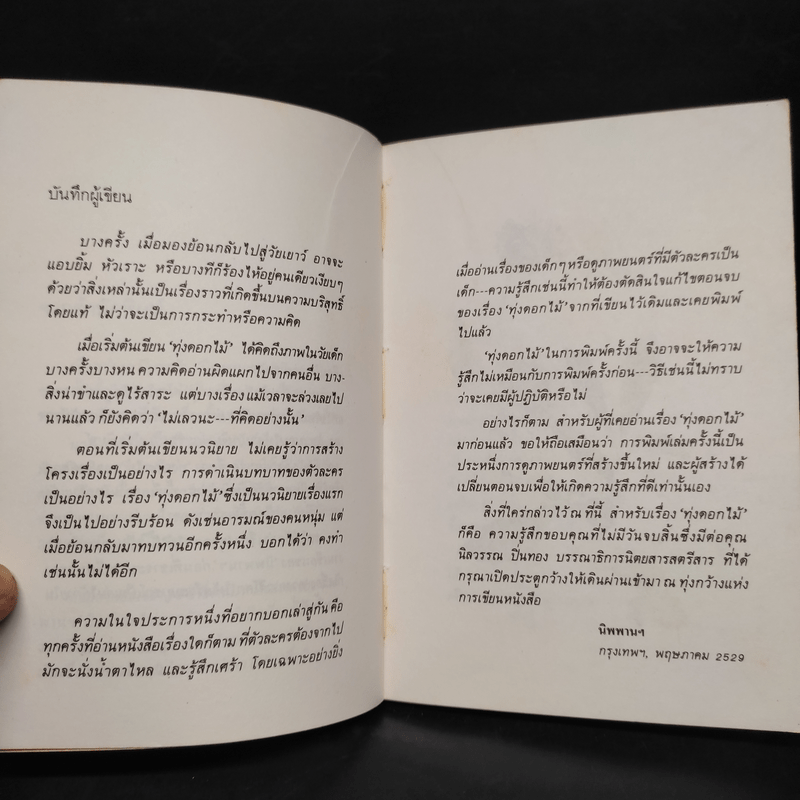 บันทึกผู้เขียน
บางครั้ง เมื่อมองย้อนกลับไปสู่วัยเยาว์ อาจจะ
แอบยิ้ม หัวเราะ หรือบางทีก็ร้องไห้อยู่คนเดียวเงียบๆ
ด้วยว่าสิ่งเหล่านั้นเป็นเรื่องราวที่เกิดขึ้นบนความบริสุทธิ์
โดยแท้ ไม่ว่าจะเป็นการกระทำหรือความคิด
เมื่อเริ่มต้นเขียน 'ทุ่งดอกไม้' ได้คิดถึงภาพในวัยเด็ก
บางครั้งบางหน ความคิดอ่านผิดแผกไปจากคนอื่น บาง-
สิ่งน่าขำและดูไร้สาระ แต่บางเรื่องแม้เวลาจะล่วงเลยไป
นานแล้ว ก็ยังคิดว่า 'ไม่เลวนะ---ที่คิดอย่างนั้น'
ตอนที่เริ่มต้นเขียนนวนิยาย ไม่เคยรู้ว่าการสร้าง
โครงเรื่องเป็นอย่างไร การดำเนินบทบาทของตัวละคร
เป็นอย่างไร เรื่อง 'ทุ่งดอกไม้' ซึ่งเป็นนวนิยายเรื่องแรก
จึงเป็นไปอย่างรีบร้อน ดังเช่นอารมณ์ของคนหนุ่ม แต่
เมื่อย้อนกลับมาทบทวนอีกครั้งหนึ่ง บอกได้ว่า คงทำ
เช่นนั้นไม่ได้อีก
ความในใจประการหนึ่งที่อยากบอกเล่าสู่กันคือ
ทุกครั้งที่อ่านหนังสือเรื่องใดก็ตาม ที่ตัวละครต้องจากไป
มักจะนั่งน้ำตาไหล และรู้สึกเศร้า โดยเฉพาะอย่างยิ่ง
เมื่ออ่านเรื่องของเด็กๆ หรือดูภาพยนตร์ที่มีตัวละครเป็น
เด็ก---ความรู้สึกเช่นนี้ทำให้ต้องตัดสินใจแก้ไขตอนจบ
ของเรื่อง 'ทุ่งดอกไม้' จากที่เขียนไว้เดิมและเคยพิมพ์
ไปแล้ว
'ทุ่งดอกไม้' ในการพิมพ์ครั้งนี้ จึงอาจจะให้ความ
รู้สึกไม่เหมือนกับการพิมพ์ครั้งก่อน---วิธีเช่นนี้ไม่ทราบ
ว่าจะเคยมีผู้ปฏิบัติหรือไม่
อย่างไรก็ตาม สำหรับผู้ที่เคยอ่านเรื่อง 'ทุ่งดอกไม้'
มาก่อนแล้ว ขอให้ถือเสมือนว่า การพิมพ์เล่มครั้งนี้เป็น
ประหนึ่งการดูภาพยนตร์ที่สร้างขึ้นใหม่ และผู้สร้างได้
เปลี่ยนตอนจบเพื่อให้เกิดความรู้สึกที่ดีเท่านั้นเอง
สิ่งที่ใคร่กล่าวไว้ ณ ที่นี้ สำหรับเรื่อง 'ทุ่งดอกไม้'
ก็คือ ความรู้สึกขอบคุณที่ไม่มีวันจบสิ้นซึ่งมีต่อคุณ
นิลวรรณ ปิ่นทอง บรรณาธิการนิตยสารสตรีสาร ที่ได้
กรุณาเปิดประตูกว้างให้เดินผ่านเข้ามา ณ ทุ่งกว้างแห่ง
การเขียนหนังสือ
นิพพานฯ
กรุงเทพฯ, พฤษภาคม 2529